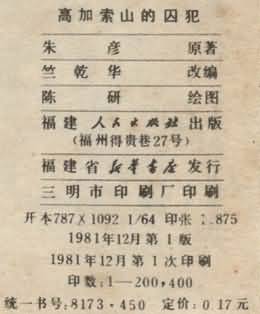 高加索山的囚犯
朱彦 原著
竺乾华 改编
陈研 绘图
福建人民出版社出版
(福州得贵巷27号)
福建省新华书店发行
三明市印刷厂印刷
开本787×1092 1/64 印张 .875
1981年12月第1版
1981年12月第1次印刷
印数:1—200,400
统一书号:8173·450 定价:0.17元